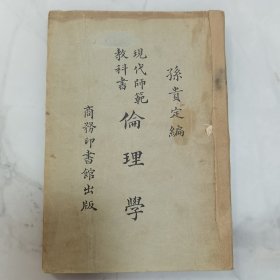 孫貴定編
現代師範
教科書
倫理學
商務印書館出版